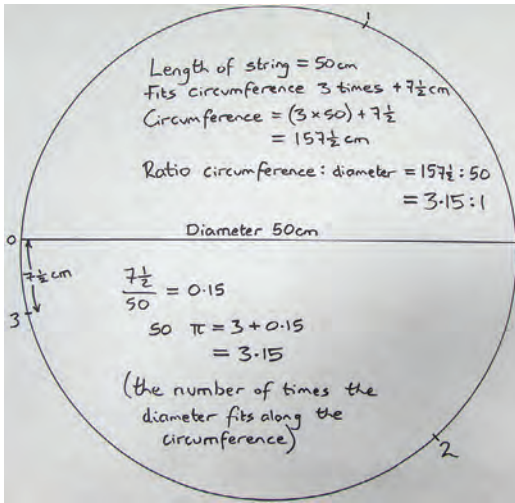 1
Length of string = 50cm
Fits circumference 3 times + 7½cm
Circumference = (3 × 50) + 7½
= 157½ cm
Ratio circumference : diameter = 157½ : 50
= 3·15 : 1
Diameter 50cm
0
7½ cm
3
7½/50 = 0·15
so π = 3 + 0·15
= 3·15
(the number of times the
diameter fits along the
circumference)
2